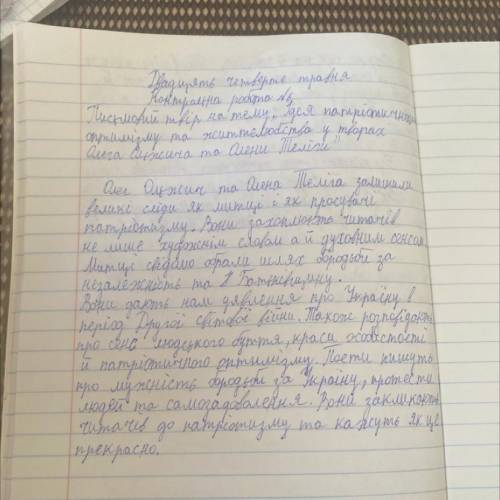 Двадцять четверте травня
Контрольна робота №5
Письмовий твір на тему „Ідея патріотичного
оптимізму та життєлюбства у творах
Олега Ольжича та Олени Теліги"
Олег Ольжич та Олена Теліга залишили
великі сліди як митці і як просувачі
патріотизму. Вони захоплюють читачів
не лише художнім словом а й духовним сенсом.
Митці свідомо обрали шлях боротьби за
незалежність та Батьківщину.
Вони дають нам уявлення про Україну в
період Другої світової війни. Також розповідають
про сенс людського буття, краси особистості
й патріотичного оптимізму. Поети пишуть
про мужність боротьби за Україну, протести
людей та самозадоволення. Вони закликають
читачів до патріотизму та кажуть як це
прекрасно.